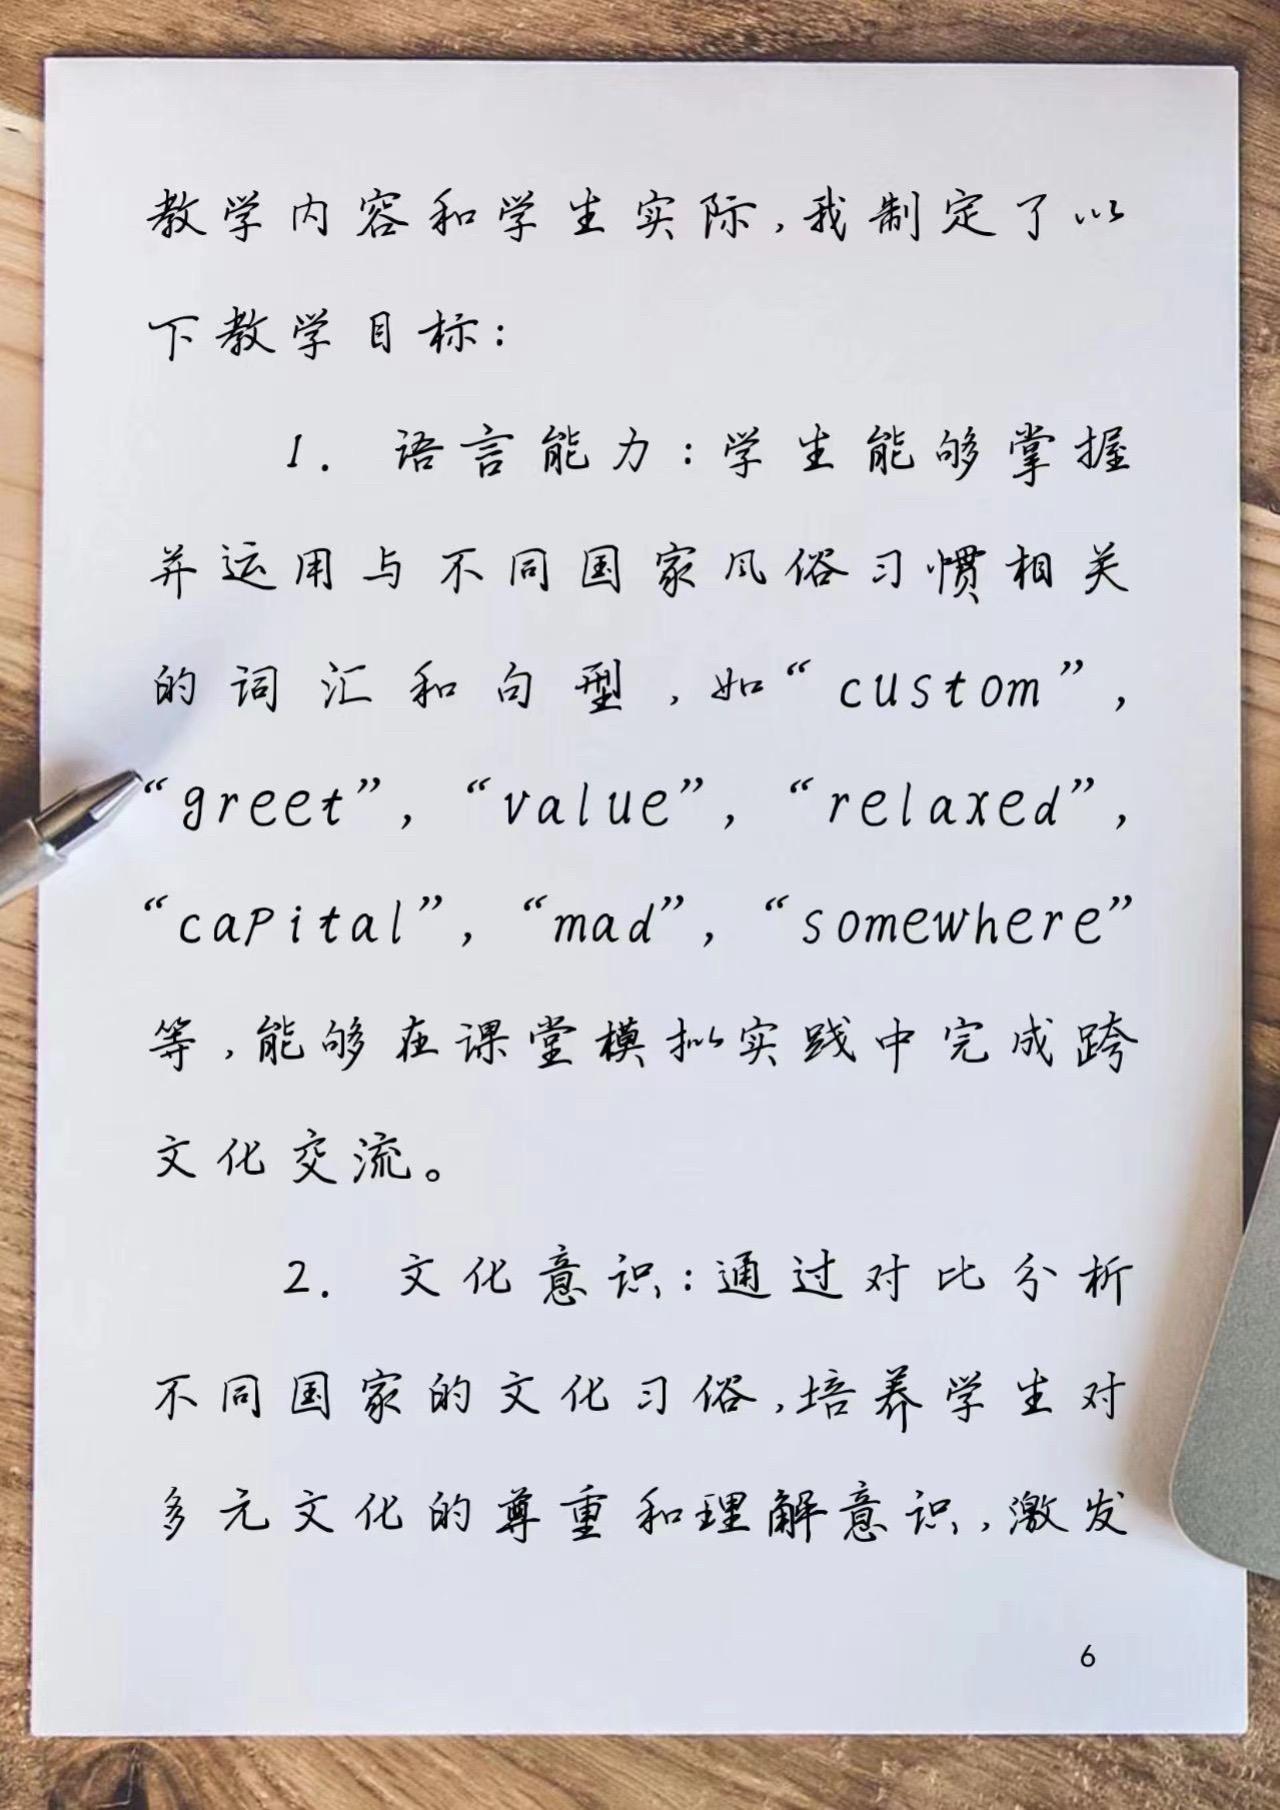 教学内容和学生实际,我制定了以
下教学目标:
1. 语言能力:学生能够掌握
并运用与不同国家风俗习惯相关
的词汇和句型,如“custom”,
“greet”, “value”, “relaxed”,
“capital”, “mad”, “somewhere”
等,能够在课堂模拟实践中完成跨
文化交流。
2. 文化意识:通过对比分析
不同国家的文化习俗,培养学生对
多元文化的尊重和理解意识,激发
6